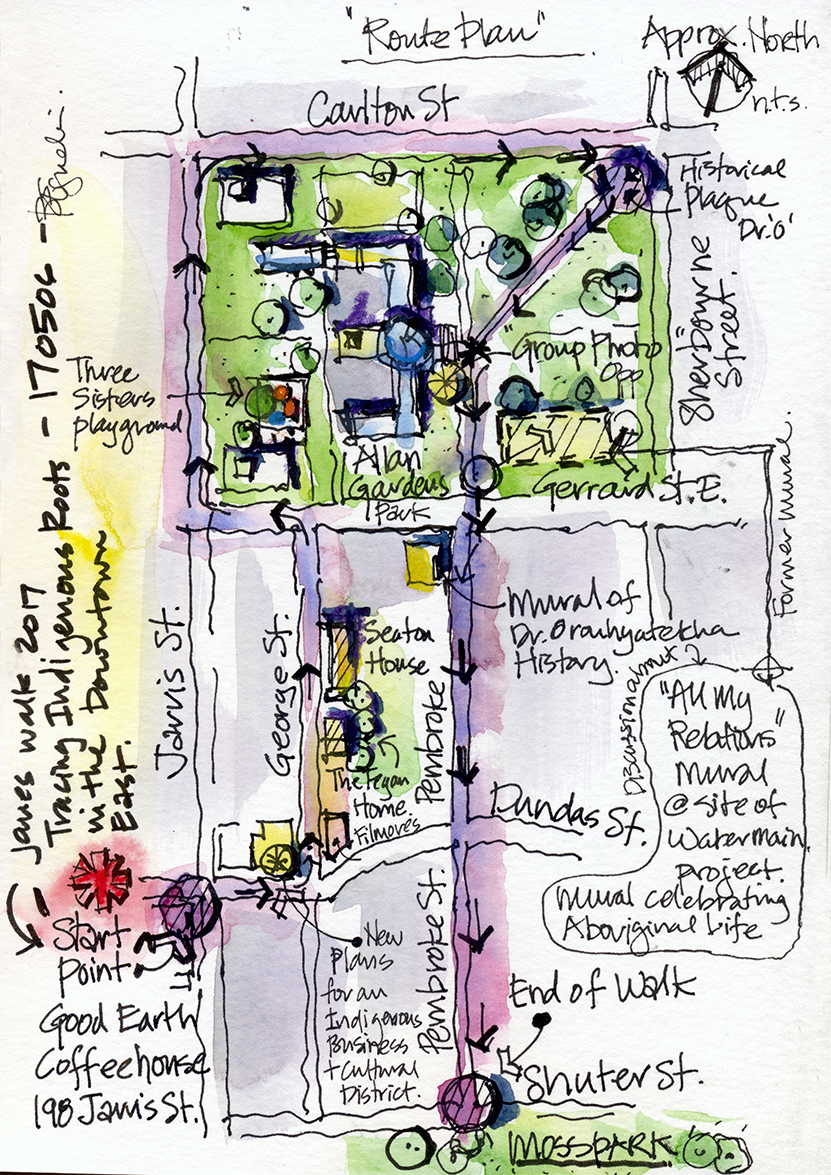 "Route Plan"
Approx. North
n.t.s.
Carlton St
Historical
Plaque
Dr. 'O'
Sherbourne
Street.
"Group Photo
Opp
Three
Sisters
playground
Allan
Gardens
Park
Gerrard St. E.
Former Mural.
Mural of
Dr. Oronhyatekha
History.
Seaton
House
Jarvis St.
George St.
Pembroke
The Fegan
Home.
Filmore's
Dundas St.
Discussion about
"All My
Relations"
Mural
@ site of
Watermain
project.
Mural celebrating
Aboriginal Life
Janes walk 2017
Tracing Indigenous Roots - 170506 -
in the Downtown
East.
Start
point
Good Earth
Coffeehouse
198 Jarvis St.
New
Plans
for an
Indigenous
Business
+ Cultural
District.
Pembroke St.
End of Walk
Shuter St.
MOSS PARK